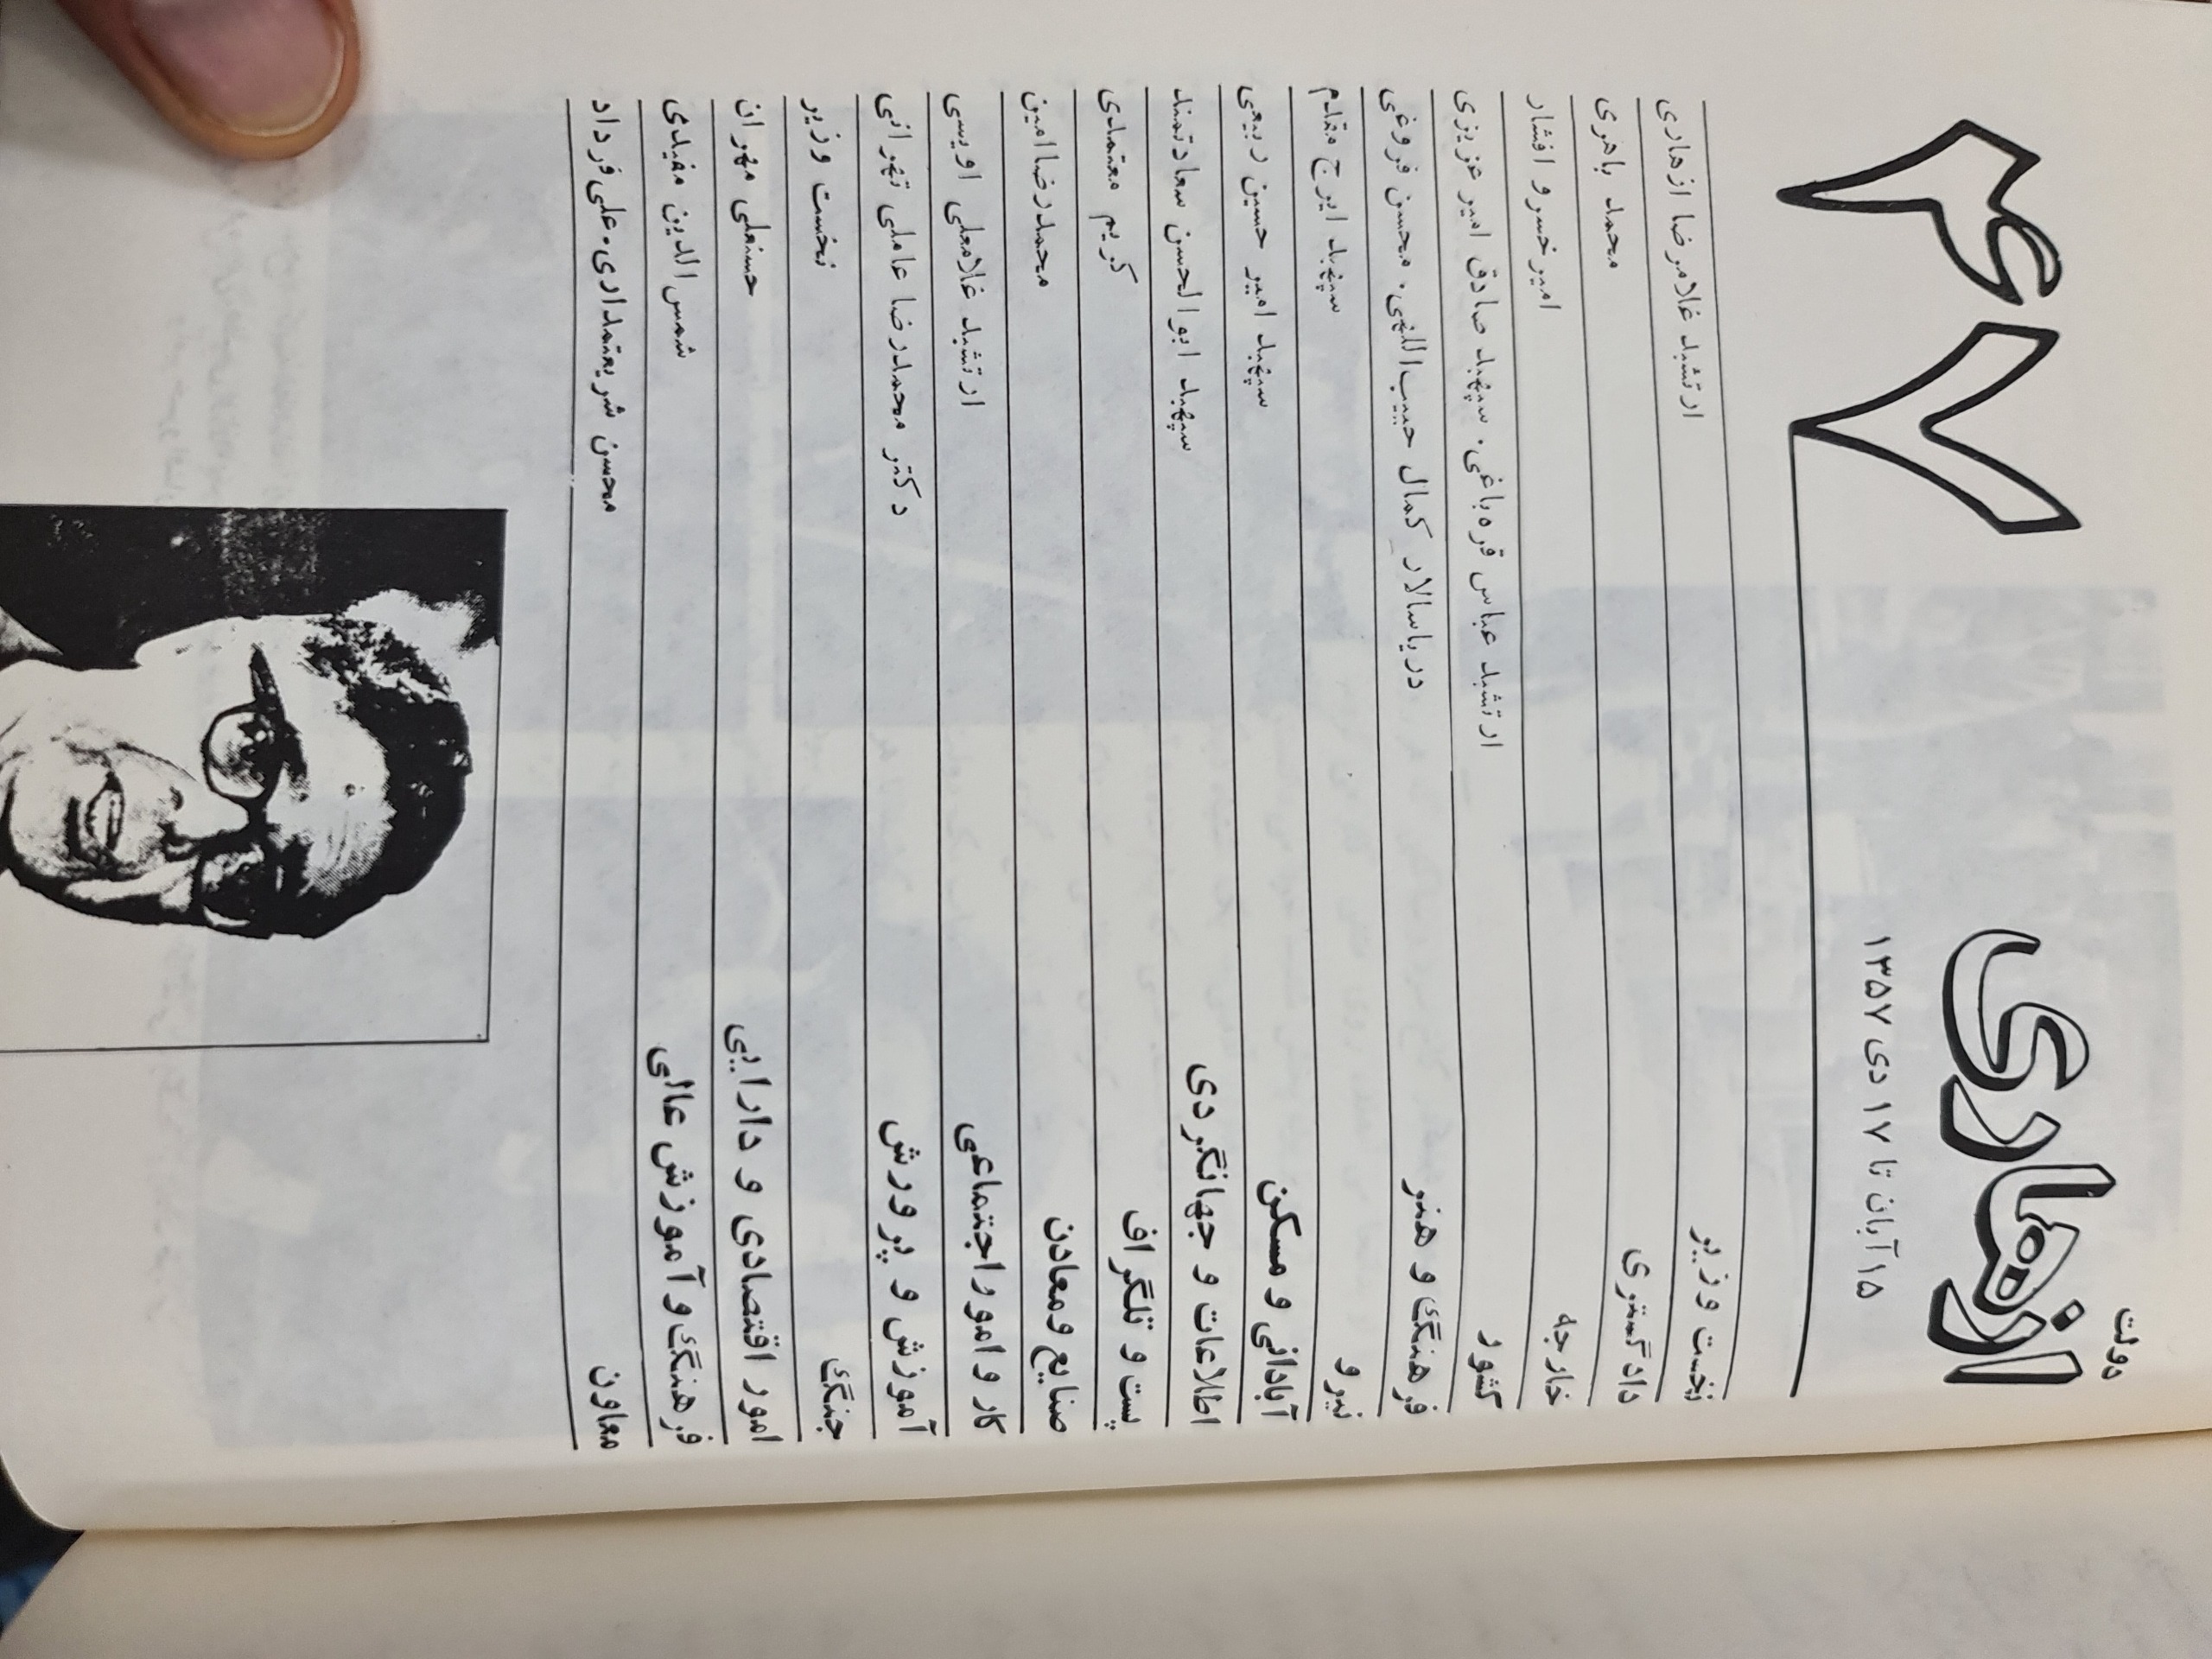 دولت
ازهاری ۴۷
۱۵ آبان تا ۱۷ دی ۱۳۵۷
نخست وزیر ارتشبد غلامرضا ازهاری
دادگستری محمد باهری
خارجه امیرخسرو افشار
کشور ارتشبد عباس قره باغی. سپهبد صادق امیر عزیزی
فرهنگ و هنر دریاسالار کمال حبیب‌اللهی. محسن فروغی
نیرو سپهبد ایرج مقدم
آبادانی و مسکن سپهبد امیر حسین ربیعی
اطلاعات و جهانگردی سپهبد ابوالحسن سعادتمند
پست و تلگراف کریم معتمدی
صنایع ومعادن محمدرضا امین
کار و امور اجتماعی ارتشبد غلامعلی اویسی
آموزش و پرورش دکتر محمدرضا عاملی تهرانی
جنگ نخست وزیر
امور اقتصادی و دارایی حسنعلی مهران
فرهنگ و آموزش عالی شمس‌الدین مفیدی
معاون محسن شریعتمداری. علی فرداد